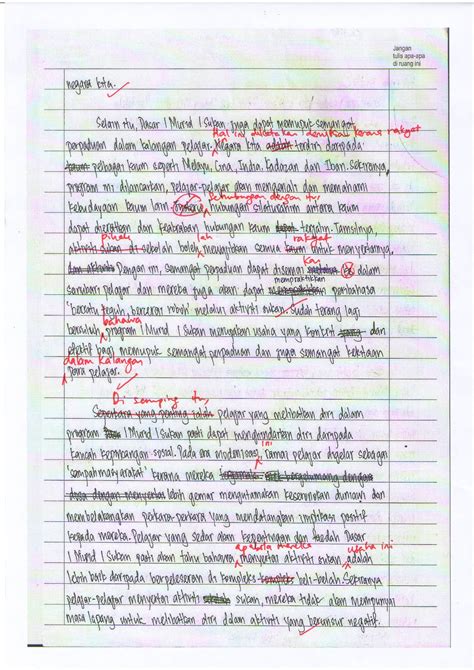 Jangan
tulis apa-apa
di ruang ini
negara kita.
Selain itu, Dasar 1 Murid 1 Sukan juga dapat memupuk semangat
Hal ini dikatakan demikian kerana rakyat
perpaduan dalam kalangan pelajar. Negara kita terdiri daripada
pelbagai kaum seperti Melayu, Cina, India, Kadazan dan Iban. Sekiranya,
program ini dilancarkan, pelajar-pelajar akan mengenali dan memahami
Sehubungan dengan itu,
kebudayaan kaum lain. hubungan silaturahim antara kaum
dapat dieratkan dan keakraban hubungan kaum dapat terjalin. Tamsilnya,
pihak lah rakyat
aktiviti sukan di sekolah boleh mewajibkan semua kaum untuk menyertainya.
kan
Dengan ini, semangat perpaduan dapat disemai dalam
mempraktikkan
sanubari pelajar dan mereka juga akan dapat peribahasa
'bersatu teguh, bercerai roboh' melalui aktiviti sukan. Sudah terang lagi
bahawa
bersuluh program 1 Murid 1 Sukan merupakan usaha yang konkrit dan
efektif bagi memupuk semangat perpaduan dan juga semangat kekitaan
dalam kalangan
para pelajar.
Di samping itu,
Sementara yang penting ialah pelajar yang melibatkan diri dalam
program 1 Murid 1 Sukan pasti dapat menghindarkan diri daripada
ini
kancah kepincangan sosial. Pada era modenisasi, ramai pelajar digelar sebagai
'sampah masyarakat' kerana mereka
lebih gemar mengutamakan keseronokan duniawi dan
membelakangkan perkara-perkara yang mendatangkan implikasi positif
kepada mereka. Pelajar yang sedar akan kepentingan dan faedah Dasar
apabila mereka usaha ini
1 Murid 1 Sukan pasti akan tahu bahawa menyertai aktiviti sukan adalah
lebih baik daripada berpeleseran di kompleks beli-belah. Sekiranya
pelajar-pelajar menyertai aktiviti sukan, mereka tidak akan mempunyai
masa lapang untuk melibatkan diri dalam aktiviti yang berunsur negatif.